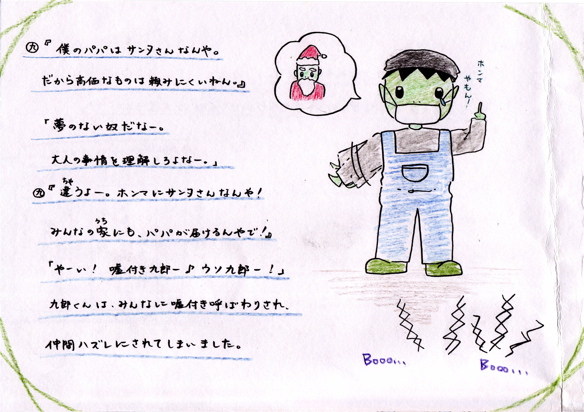 九『僕のパパはサンタさんなんや。
だから高価なものは頼みにくいねん。』
「夢のない奴だなー。
大人の事情を理解しろよなー。」
九『違うよー。ホンマにサンタさんなんや！
ちゃ
みんなの家にも、パパが届けるんやで！』
うち
「やーい！嘘付き九郎ー♪ウソ九郎ー！」
九郎くんは、みんなに嘘付き呼ばわりされ、
仲間ハズレにされてしまいました。
ホンマ
やもん！
Booo...
Booo...